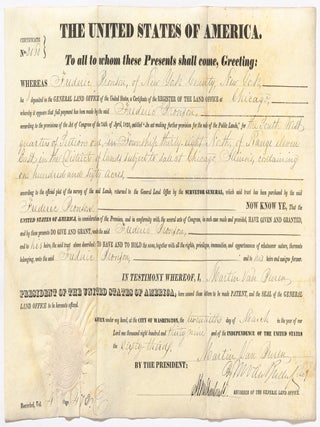 THE UNITED STATES OF AMERICA.
CERTIFICATE
No.
To all to whom these Presents shall come, Greeting:
WHEREAS Frederic Bronson, of New York County, New York,
ha deposited in the GENERAL LAND OFFICE of the United States, a Certificate of the REGISTER OF THE LAND OFFICE at Chicago,
whereby it appears that full payment has been made by the said Frederic Bronson,
according to the provisions of the Act of Congress of the 24th of April, 1820, entitled "An act making further provision for the sale of the Public Lands," for the South West
quarter of Section one, in Township thirty eight North, of Range eleven
East, in the District of Lands subject to sale at Chicago Illinois, containing
one hundred and sixty acres,
according to the official plat of the survey of the said Lands, returned to the General Land Office by the SURVEYOR GENERAL, which said tract has been purchased by the said
Frederic Bronson, NOW KNOW YE, that the
UNITED STATES OF AMERICA, in consideration of the Premises, and in conformity with the several acts of Congress, in such case made and provided, HAVE GIVEN AND GRANTED,
and by these presents DO GIVE AND GRANT, unto the said Frederic Bronson,
and to his heirs, the said tract above described: TO HAVE AND TO HOLD the same, together with all the rights, privileges, immunities, and appurtenances of whatsoever nature, thereunto
belonging, unto the said Frederic Bronson, and to his heirs and assigns forever.
IN TESTIMONY WHEREOF, I, Martin Van Buren
PRESIDENT OF THE UNITED STATES OF AMERICA, have caused these Letters to be made PATENT, and the SEAL of the GENERAL
LAND OFFICE to be hereunto affixed.
GIVEN under my hand, at the CITY OF WASHINGTON, the twentieth day of March in the year of our
Lord one thousand eight hundred and thirty nine and of the INDEPENDENCE OF THE UNITED STATES
the sixty third.
BY THE PRESIDENT: Martin Van Buren
By
RECORDER OF THE GENERAL LAND OFFICE.
Recorded, Vol. Page